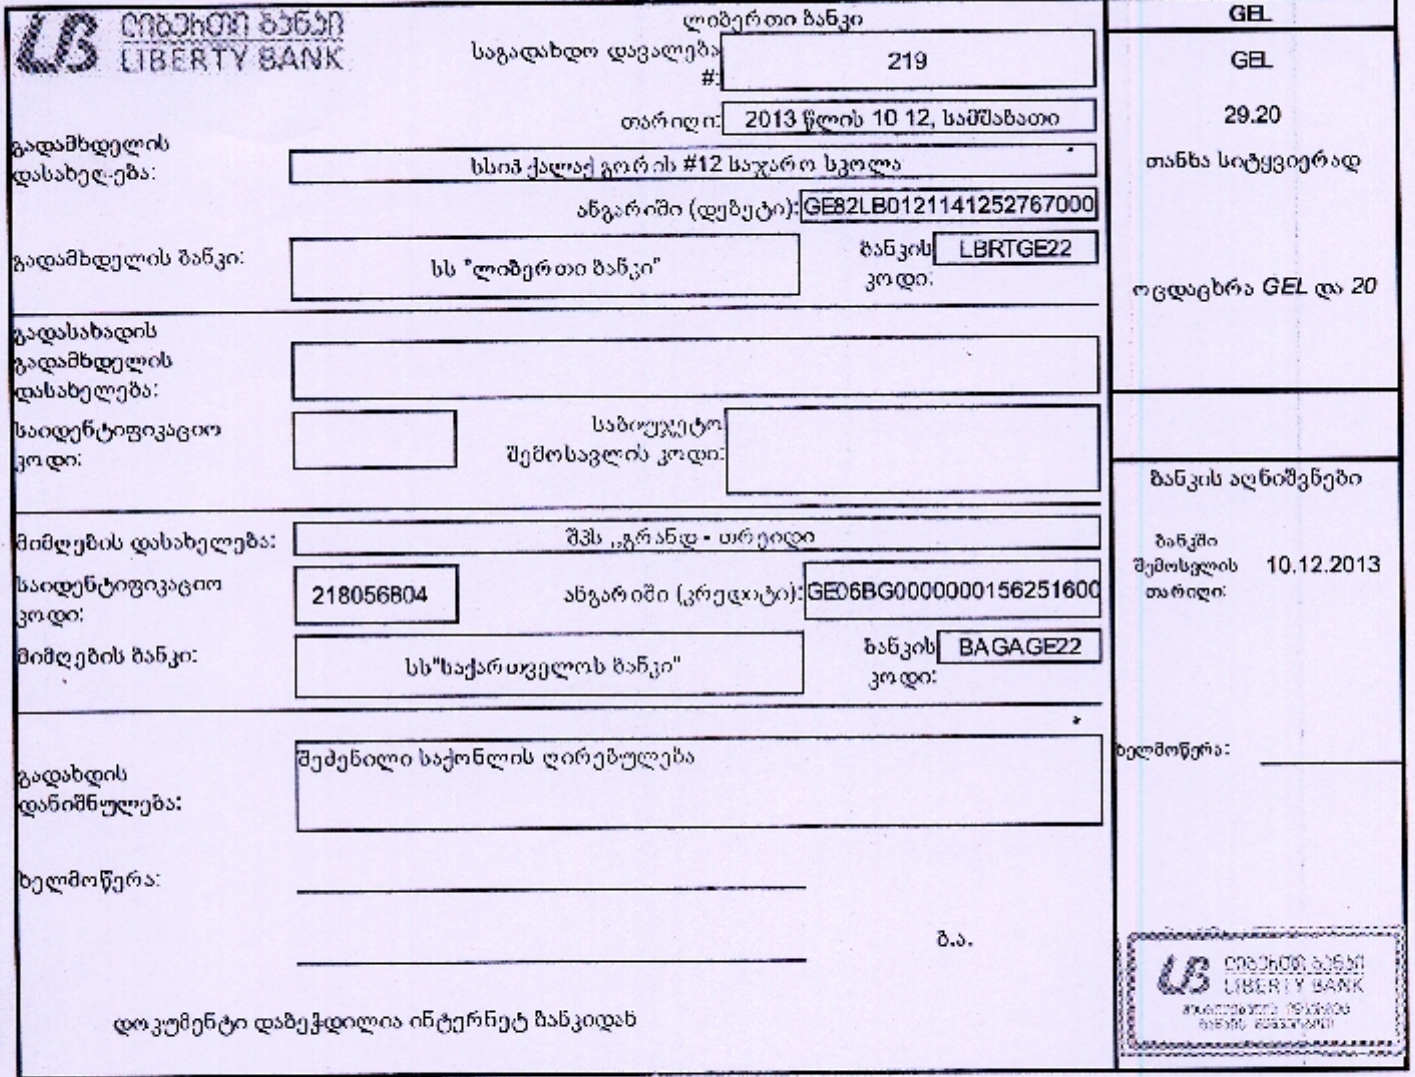 ლიბერთი ბანკი
LIBERTY BANK
ლიბერთი ბანკი
საგადახდო დავალება
#:
219
თარიღი:
2013 წლის 10 12, სამშაბათი
გადამხდელის
დასახელება:
სსიპ ქალაქ გორის #12 საჯარო სკოლა
ანგარიში (დებეტი):
GE82LB0121141252767000
გადამხდელის ბანკი:
სს "ლიბერთი ბანკი"
ბანკის
კოდი:
LBRTGE22
გადასახადის
გადამხდელის
დასახელება:
საიდენტიფიკაციო
კოდი:
საბიუჯეტო
შემოსავლის კოდი:
მიმღების დასახელება:
შპს ,,გრანდ - თრეიდი
საიდენტიფიკაციო
კოდი:
218056804
ანგარიში (კრედიტი):
GE06BG0000000156251600
მიმღების ბანკი:
სს"საქართველოს ბანკი"
ბანკის
კოდი:
BAGAGE22
გადახდის
დანიშნულება:
შეძენილი საქონლის ღირებულება
ხელმოწერა:
ბ.ა.
დოკუმენტი დაბეჭდილია ინტერნეტ ბანკიდან
GEL
GEL
29.20
თანხა სიტყვიერად
ოცდაცხრა GEL და 20
ბანკის აღნიშვნები
ბანკში
შემოსვლის
თარიღი:
10.12.2013
ხელმოწერა:
ლიბერთი ბანკი
LIBERTY BANK